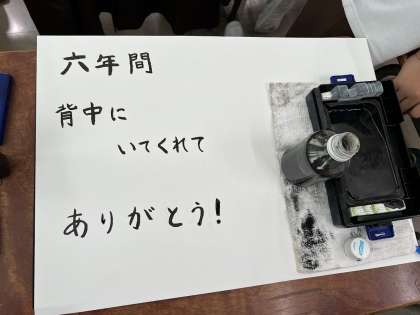 六年間
背中に
いてくれて
ありがとう!